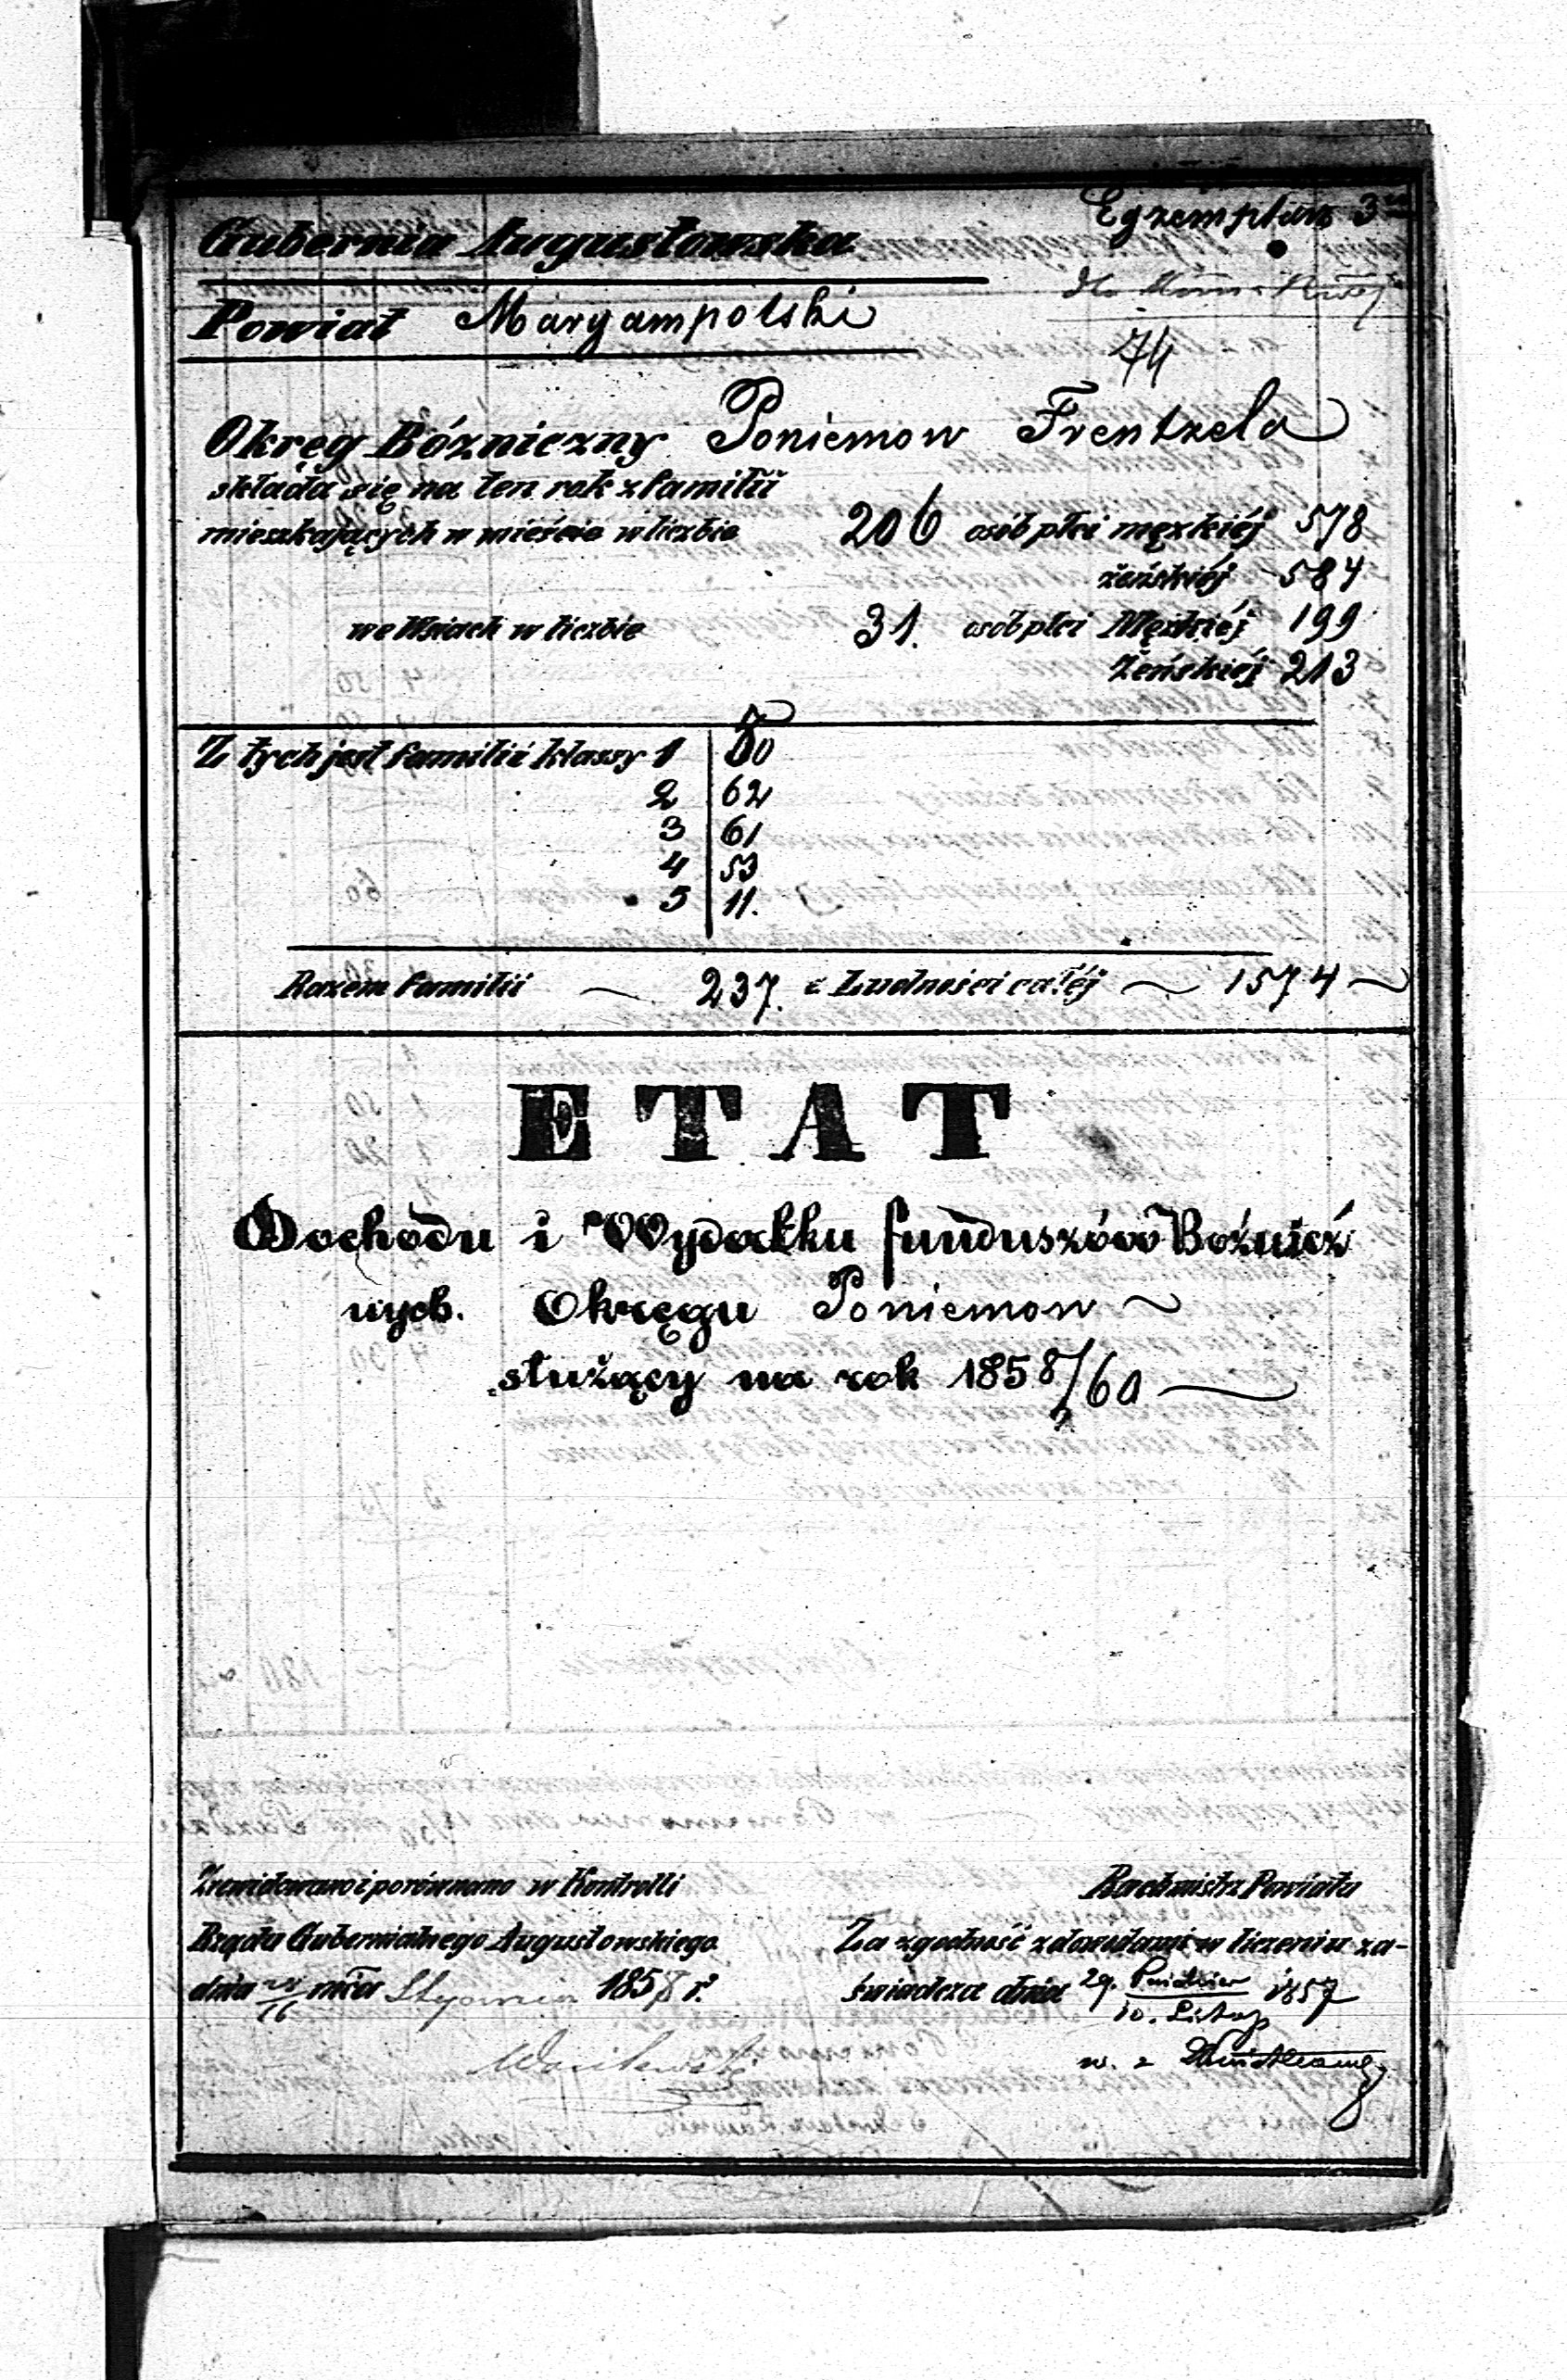 Egzemplarz 3ci
Gubernia Augustowska
Powiat Maryampolski
74
Okręg Bóżniczny Poniemon Frentzela
składa się na ten rok z familii
mieszkających w mieście w liczbie 206 osób płci męzkiéj 578
żeńskiéj 584
we Wsiach w liczbie 31. osób płci Męzkiéj 199
Żeńskiéj 213
Z tych jest familii klassy 1 50
2 62
3 61
4 53
5 11.
Razem familii 237. Ludności całéj 1574
ETAT
Dochodu i Wydatku funduszów Bóźnicz
nych. Okręgu Poniemon
służący na rok 1858/60
Zrewidowano i porównano w Kontrolli
Rządu Gubernialnego Augustowskiego
dnia 4/16 mca Stycznia 1858 r.
Wasilewski
Rachmistrz Powiatu
Za zgodność z dowodami w liczeniu za-
świadcza dnia 29. Paździer / 10. Listop 1857
w. z